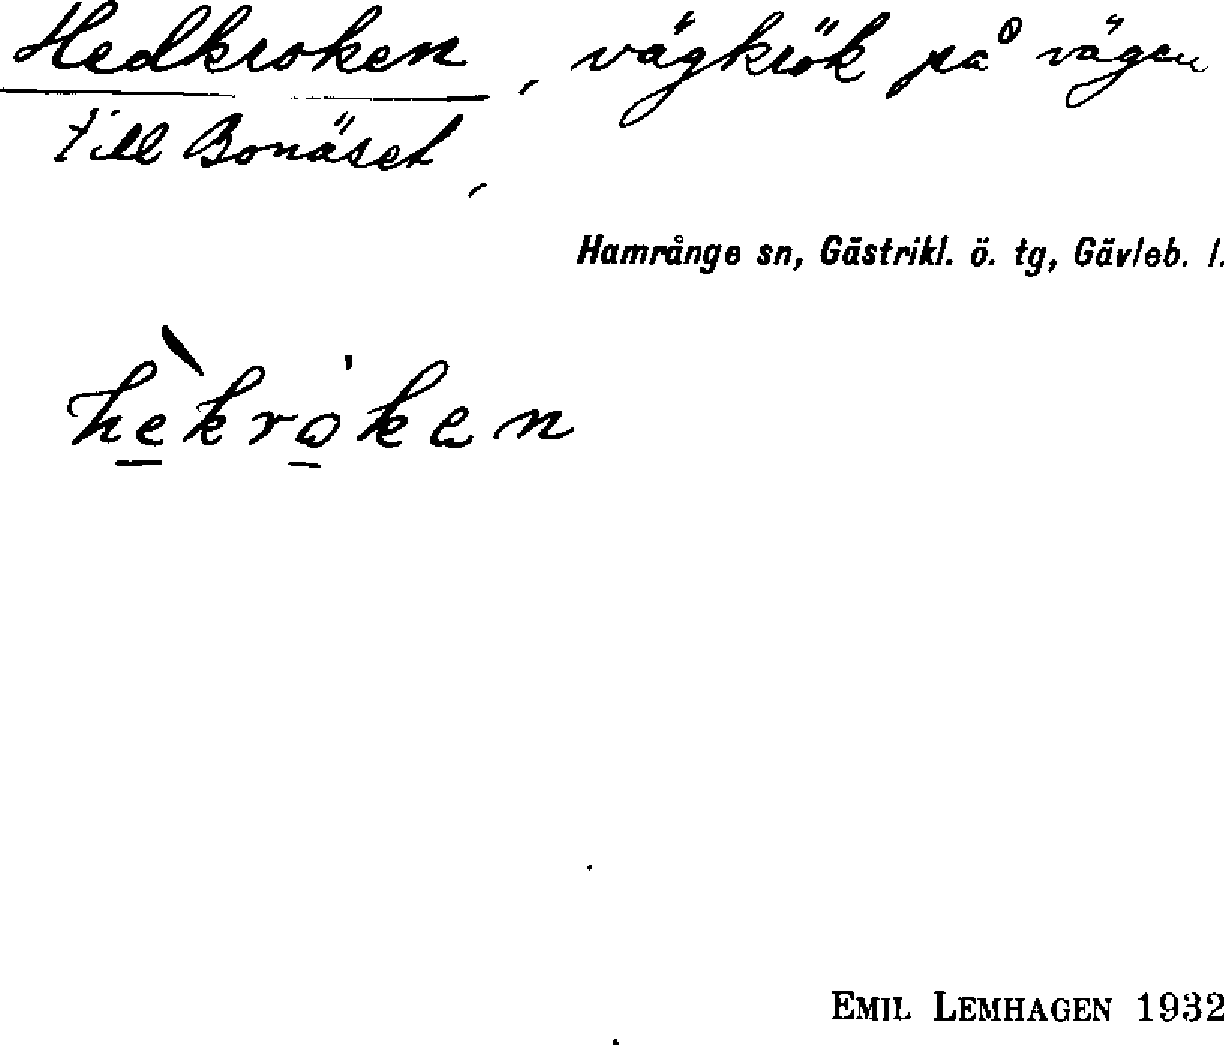 Hedkroken, vägkrök på vägen
till Bonäset,
Hamrånge sn, Gästrikl. ö. tg, Gävleb. l.
hèkroken
EMIL LEMHAGEN 1932